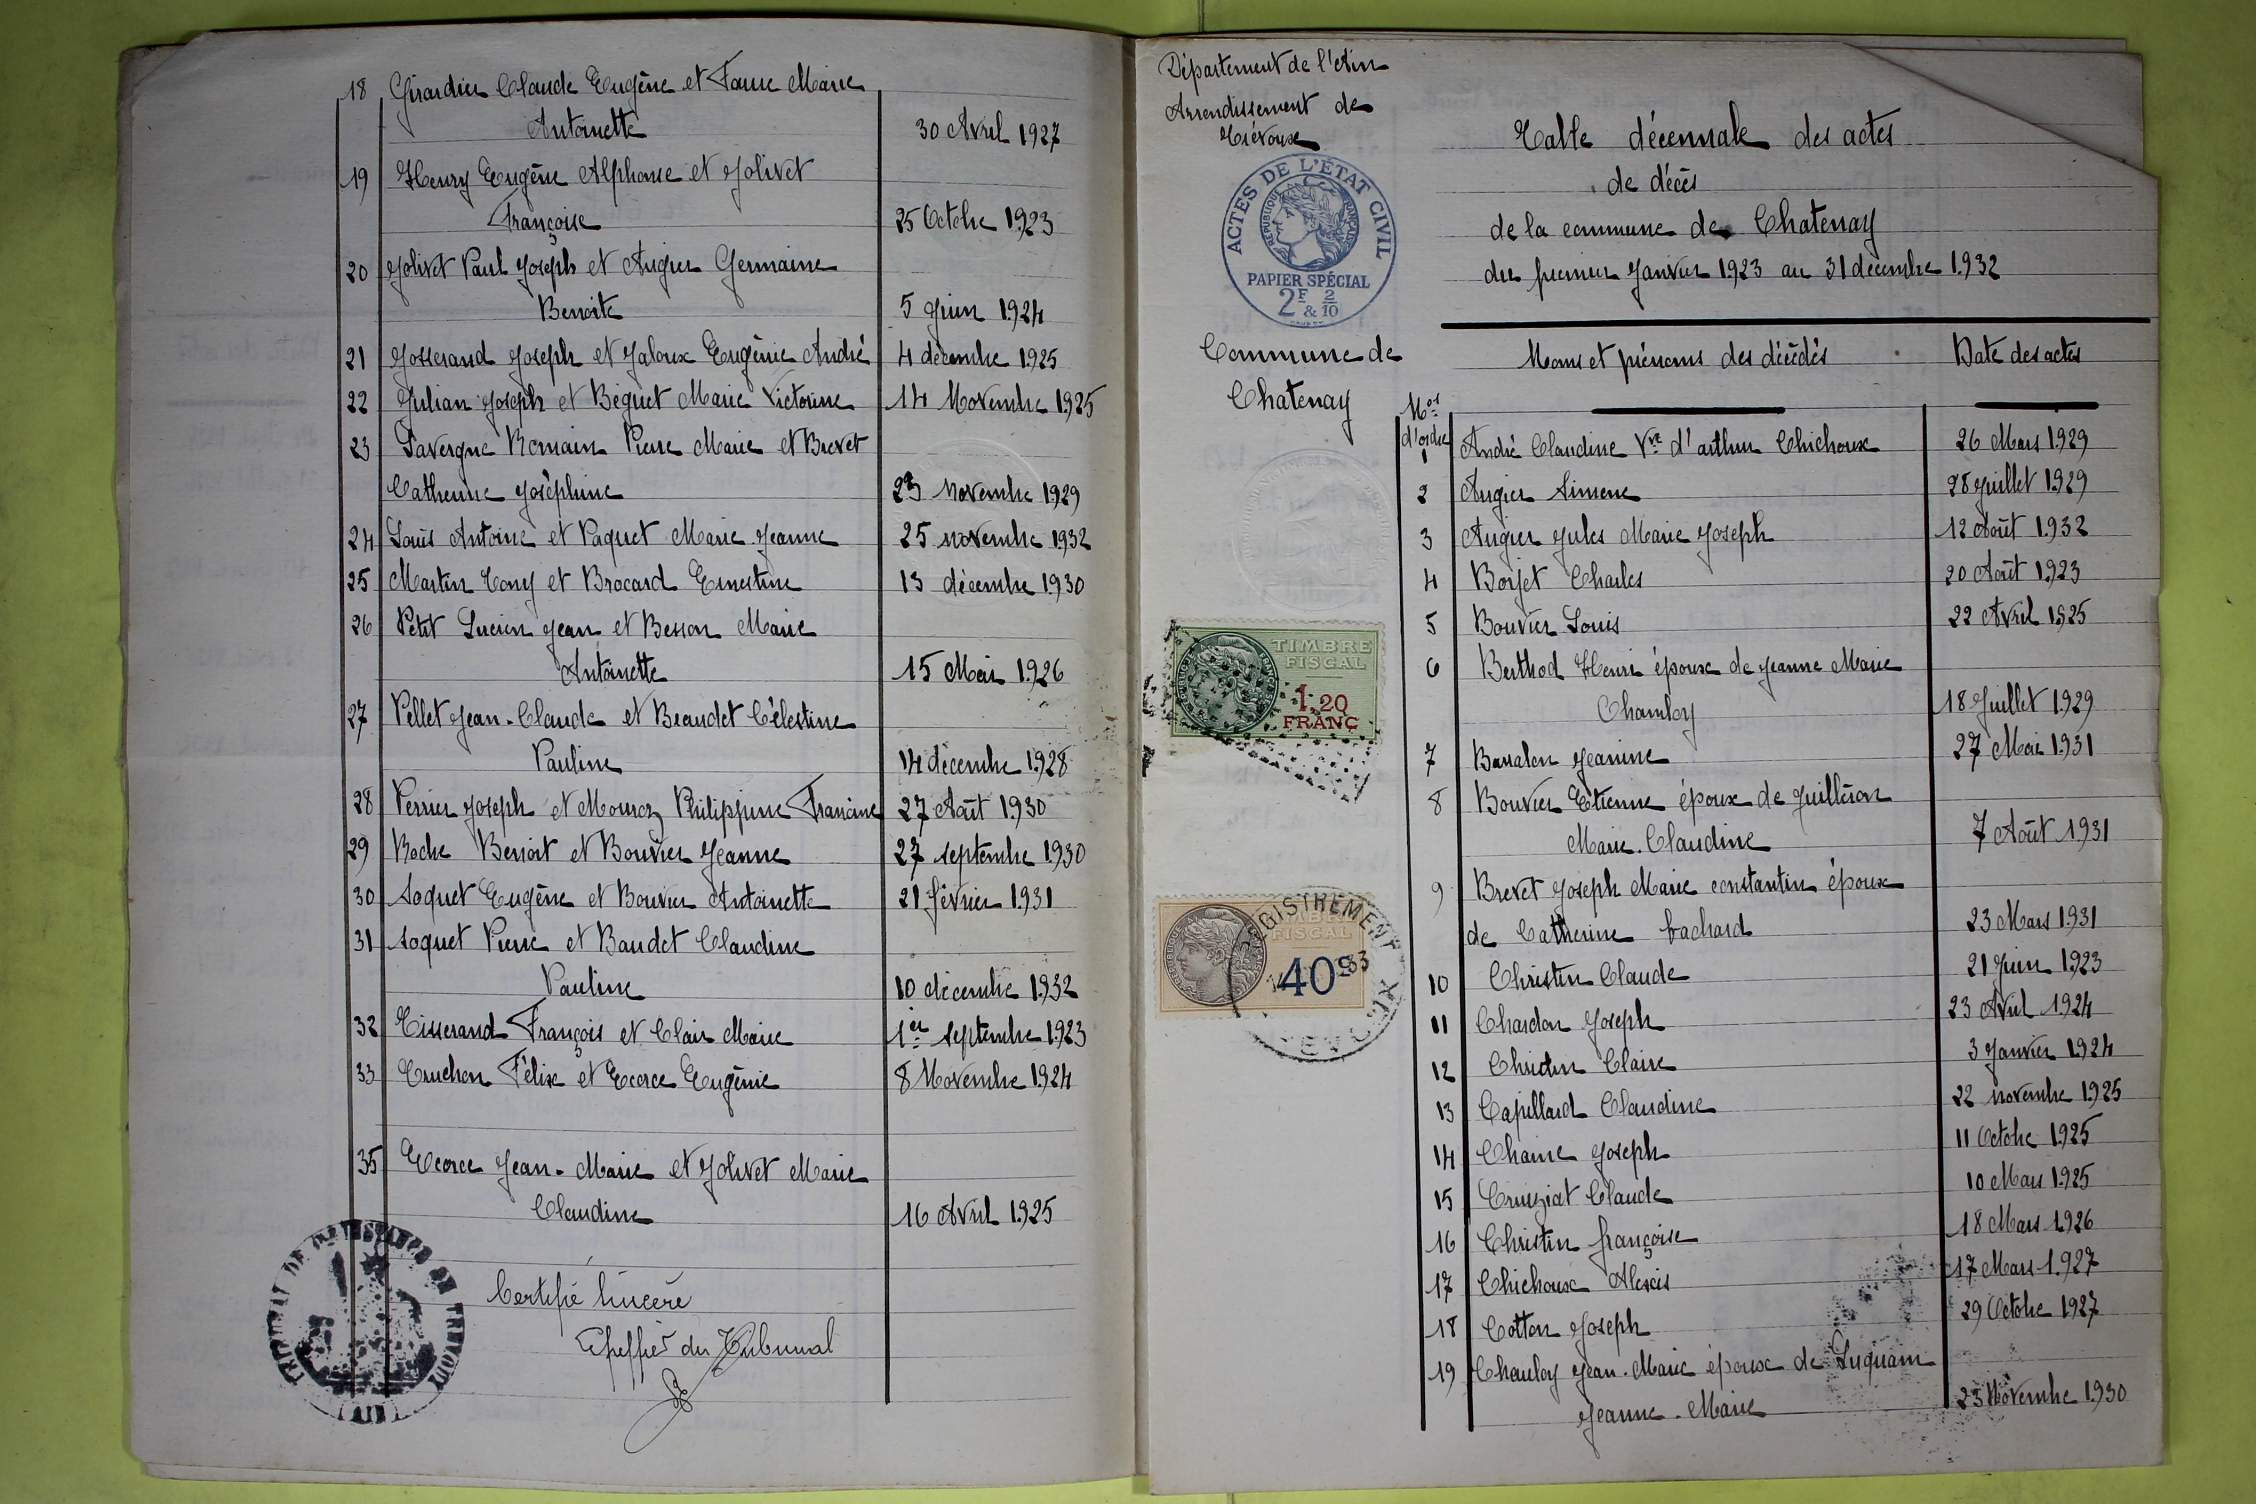 18 Girardier Claude Eugène et Faure Marie
Antoinette 30 Avril 1927
19 Henry Eugène Alphonse et Jolivet
Françoise 25 Octobre 1923
20 Jolivet Paul Joseph et Augier Germaine
Benoite 5 Juin 1924
21 Josserand Joseph et Jaloux Eugénie André 4 décembre 1925
22 Julian Joseph et Béguet Marie Victorine 14 Novembre 1925
23 Lavergne Romain Pierre Marie et Brevet
Catherine Joséphine 23 novembre 1929
24 Louis Antoine et Paquet Marie Jeanne 25 novembre 1932
25 Martin Tony et Brocard Ernestine 13 décembre 1930
26 Petit Lucien Jean et Besson Marie
Antoinette 15 Mai 1926
27 Pellet Jean-Claude et Beaudet Célestine
Pauline 14 décembre 1928
28 Perrier Joseph et Philippine Francine 27 Août 1930
29 Roche Benoit et Bouvier Jeanne 27 septembre 1930
30 Soquet Eugène et Bouvier Antoinette 21 février 1931
31 Soquet Pierre et Baudet Claudine
Pauline 10 décembre 1932
32 Tisserand François et Clair Marie 1er septembre 1923
33 Truchon Félix et Ecorce Eugénie 8 Novembre 1924
35 Ecorce Jean-Marie et Jolivet Marie
Claudine 16 Avril 1925
Certifié sincère
Greffier du Tribunal
TRIBUNAL DE 1re INSTANCE DE TREVOUX
(AIN)
Département de l'Ain
Arrondissement de
Trévoux
ACTES DE L'ÉTAT CIVIL
REPUBLIQUE FRANÇAISE
PAPIER SPÉCIAL
2F & 2/10
Commune de
Chatenay
TIMBRE
FISCAL
1,20
FRANC
TIMBRE
FISCAL
40c
33
Table décennale des actes
de décès
de la commune de Chatenay
du premier Janvier 1923 au 31 décembre 1932
Nos d'ordre Noms et prénoms des décédés Date des actes
1 André Claudine Vve d'arthur Chichoux 26 Mars 1929
2 Augier Simone 28 Juillet 1929
3 Augier Jules Marie Joseph 12 Août 1932
4 Borjet Charles 20 Août 1923
5 Bouvier Louis 22 Avril 1925
6 Berthod Henri époux de Jeanne Marie
Chamboy 18 Juillet 1929
7 Barralon Jeanine 27 Mai 1931
8 Bouvier Etienne époux de Juilléron
Marie-Claudine 7 Août 1931
9 Brevet Joseph Marie constantin époux
de Catherine bachard 23 Mars 1931
10 Christin Claude 21 Juin 1923
11 Chardon Joseph 23 Avril 1924
12 Christin Claire 3 Janvier 1924
13 Capillard Claudine 22 novembre 1925
14 Chaine Joseph 11 Octobre 1925
15 Cruiziat Claude 10 Mars 1925
16 Christin françoise 18 Mars 1926
17 Chichoux Alexis 17 Mars 1927
18 Cotton Joseph 29 Octobre 1927
19 Jean-Marie époux de Luquain
Jeanne-Marie 23 Novembre 1930